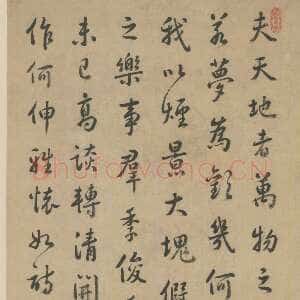 夫天地者萬物之
若夢為歡幾何
我以煙景大塊假
之樂事羣季俊
未已高談轉清開
作何伸雅懷如詩